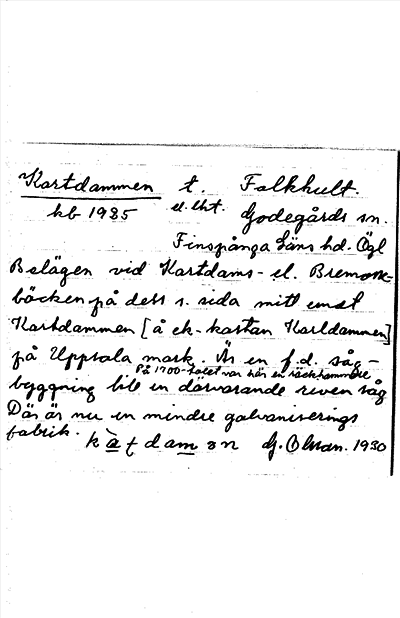 Kartdammen t. Falkhult.
hb 1985 el. lht. Godegårds sn.
Finspånga läns hd. Ögl
Belägen vid Kartdams- el. Bremossebäcken
bäcken på dess s. sida mitt emot
Kartdammen [å ek. kartan Karldammen]
på Uppsala mark. Är en f.d. såg-
På 1700-talet var här en räckhammare
byggning till en dåvarande såg
Där är nu en mindre galvaniserings
fabrik. G. Olsson. 1930